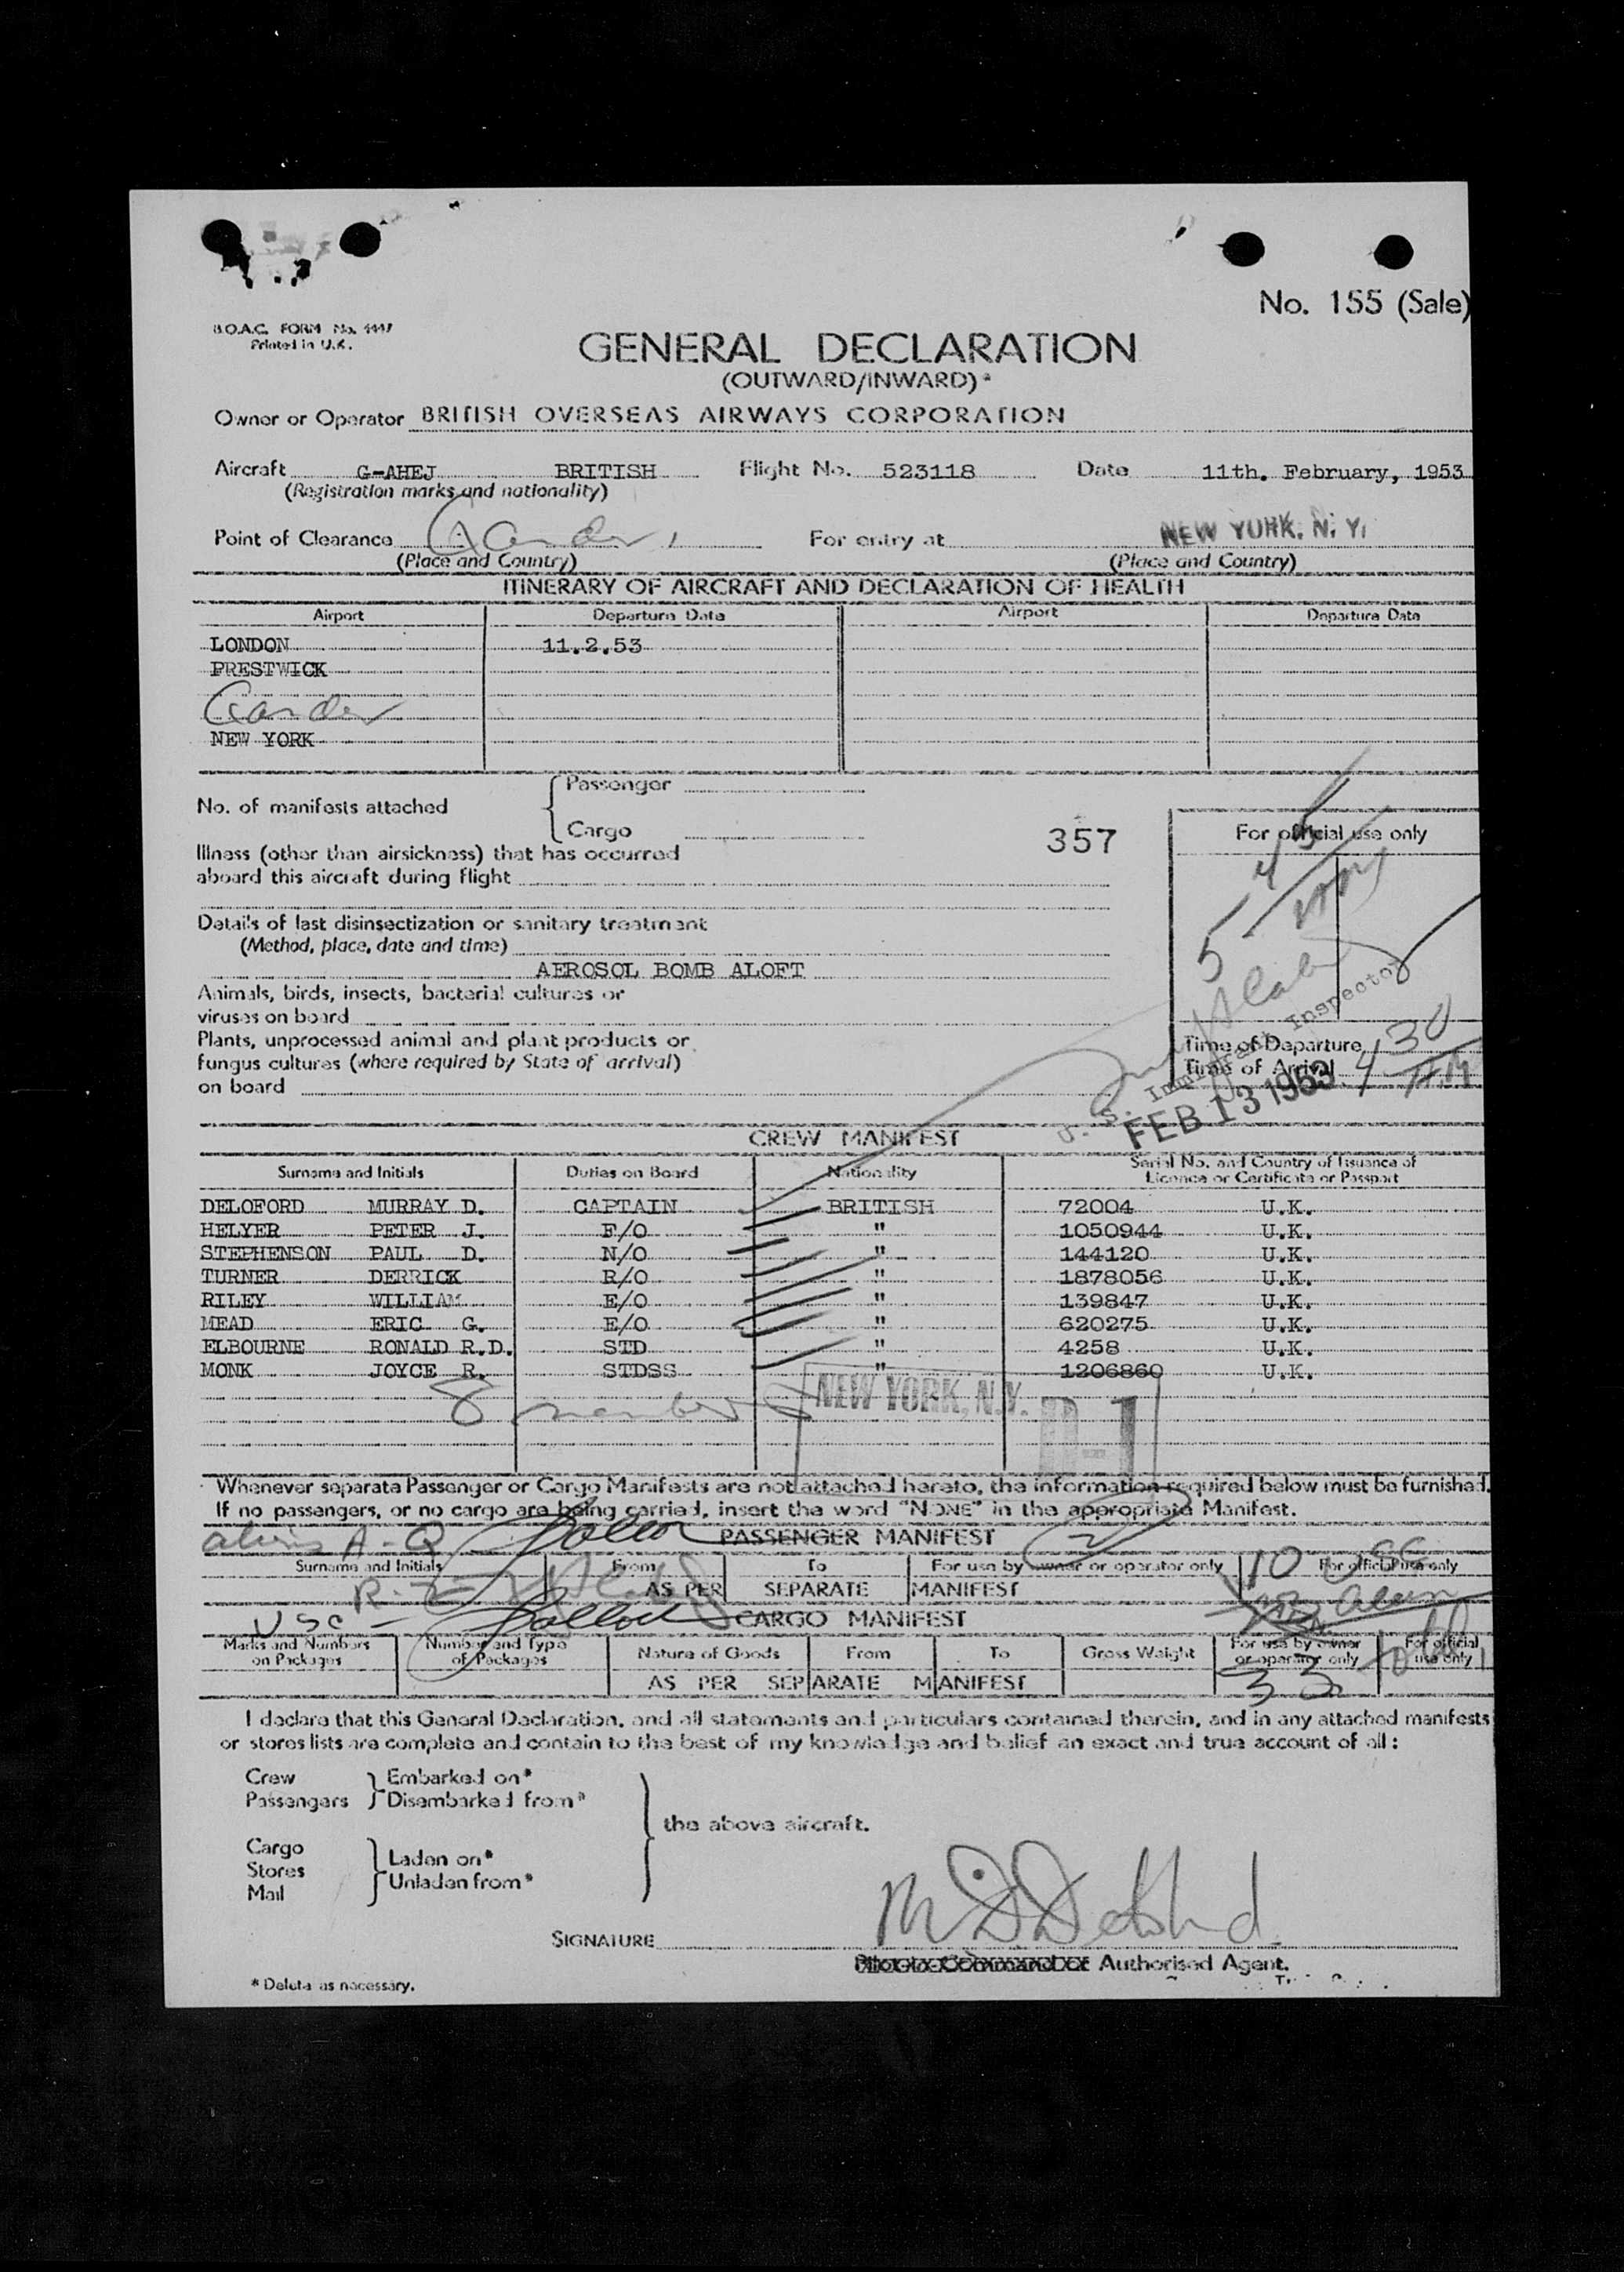 No. 155 (Sale)
B.O.A.C. FORM No. 4447
Printed in U.K.
GENERAL DECLARATION
(OUTWARD/INWARD)*
Owner or Operator BRITISH OVERSEAS AIRWAYS CORPORATION
Aircraft G-AHEJ BRITISH Flight No. 523118 Date 11th. February, 1953
(Registration marks and nationality)
Point of Clearance Gander, For entry at NEW YORK, N. Y.
(Place and Country) (Place and Country)
ITINERARY OF AIRCRAFT AND DECLARATION OF HEALTH
Airport Departure Date Airport Departure Date
LONDON 11.2.53
PRESTWICK
Gander
NEW YORK
No. of manifests attached
Passenger
Cargo
357
For official use only
Illness (other than airsickness) that has occurred
aboard this aircraft during flight
Details of last disinsectization or sanitary treatment
(Method, place, date and time)
AEROSOL BOMB ALOFT
Animals, birds, insects, bacterial cultures or
viruses on board
Plants, unprocessed animal and plant products or
fungus cultures (where required by State of arrival)
on board
Time of Departure
Time of Arrival 4 30
U. S. Immigrant Inspector
FEB 13 1953
CREW MANIFEST
Surname and Initials Duties on Board Nationality Serial No. and Country of Issuance of
Licence or Certificate or Passport
DELOFORD MURRAY D. CAPTAIN BRITISH 72004 U.K.
HELYER PETER J. F/O " 1050944 U.K.
STEPHENSON PAUL D. N/O " 144120 U.K.
TURNER DERRICK R/O " 1878056 U.K.
RILEY WILLIAM E/O " 139847 U.K.
MEAD ERIC G. E/O " 620275 U.K.
ELBOURNE RONALD R.D. STD " 4258 U.K.
MONK JOYCE R. STDSS " 1206860 U.K.
8 members
NEW YORK, N.Y.
Whenever separate Passenger or Cargo Manifests are not attached hereto, the information required below must be furnished.
If no passengers, or no cargo are being carried, insert the word "NONE" in the appropriate Manifest.
aliens A-Q
PASSENGER MANIFEST
Surname and Initials From To For use by owner or operator only For official use only
10 USC
R-Z
AS PER SEPARATE MANIFEST
USC
CARGO MANIFEST
Marks and Numbers on Packages Number and Type of Packages Nature of Goods From To Gross Weight For use by owner or operator only For official use only
AS PER SEPARATE MANIFEST
33
I declare that this General Declaration, and all statements and particulars contained therein, and in any attached manifests
or stores lists are complete and contain to the best of my knowledge and belief an exact and true account of all:
Crew
Passengers
Embarked on*
Disembarked from*
the above aircraft.
Cargo
Stores
Mail
Laden on*
Unladen from*
SIGNATURE M D Deloford
Pilot-in-Command or Authorised Agent.
* Delete as necessary.